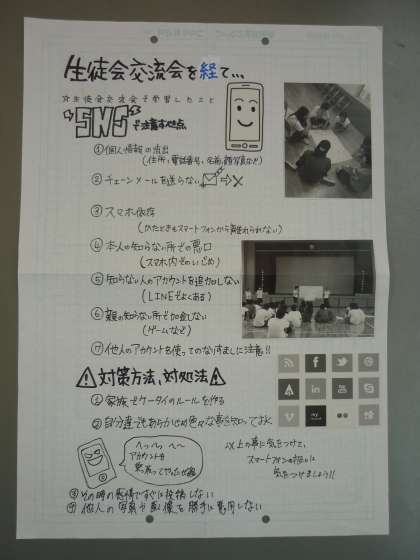 生徒会交流会を経て…
☆生徒会交流会で学習したこと
"SNS"で注意すべき点
①個人情報の流出
(住所、電話番号、名前、顔写真など)
②チェーンメールを送らない
③スマホ依存
(ひとときもスマートフォンから離れられない)
④本人の知らない所での悪口
(スマホ内でのいじめ)
⑤知らない人のアカウントを追加しない
(LINEでよくある)
⑥親の知らない所で加金しない
(ゲームなど)
⑦他人のアカウントを使ってのなりすましに注意!!
対策方法、対処法
①家族でケータイのルールを作る
②自分達でもあらかじめ色々な事を知っておく
へっへっへ〜
アカウントを
乗っ取ってやったぜ
以上の事に気をつけて、
スマートフォンの扱いに
気をつけましょう!!
③その時の感情ですぐに投稿しない
④他人の写真や画像を勝手に使用しない